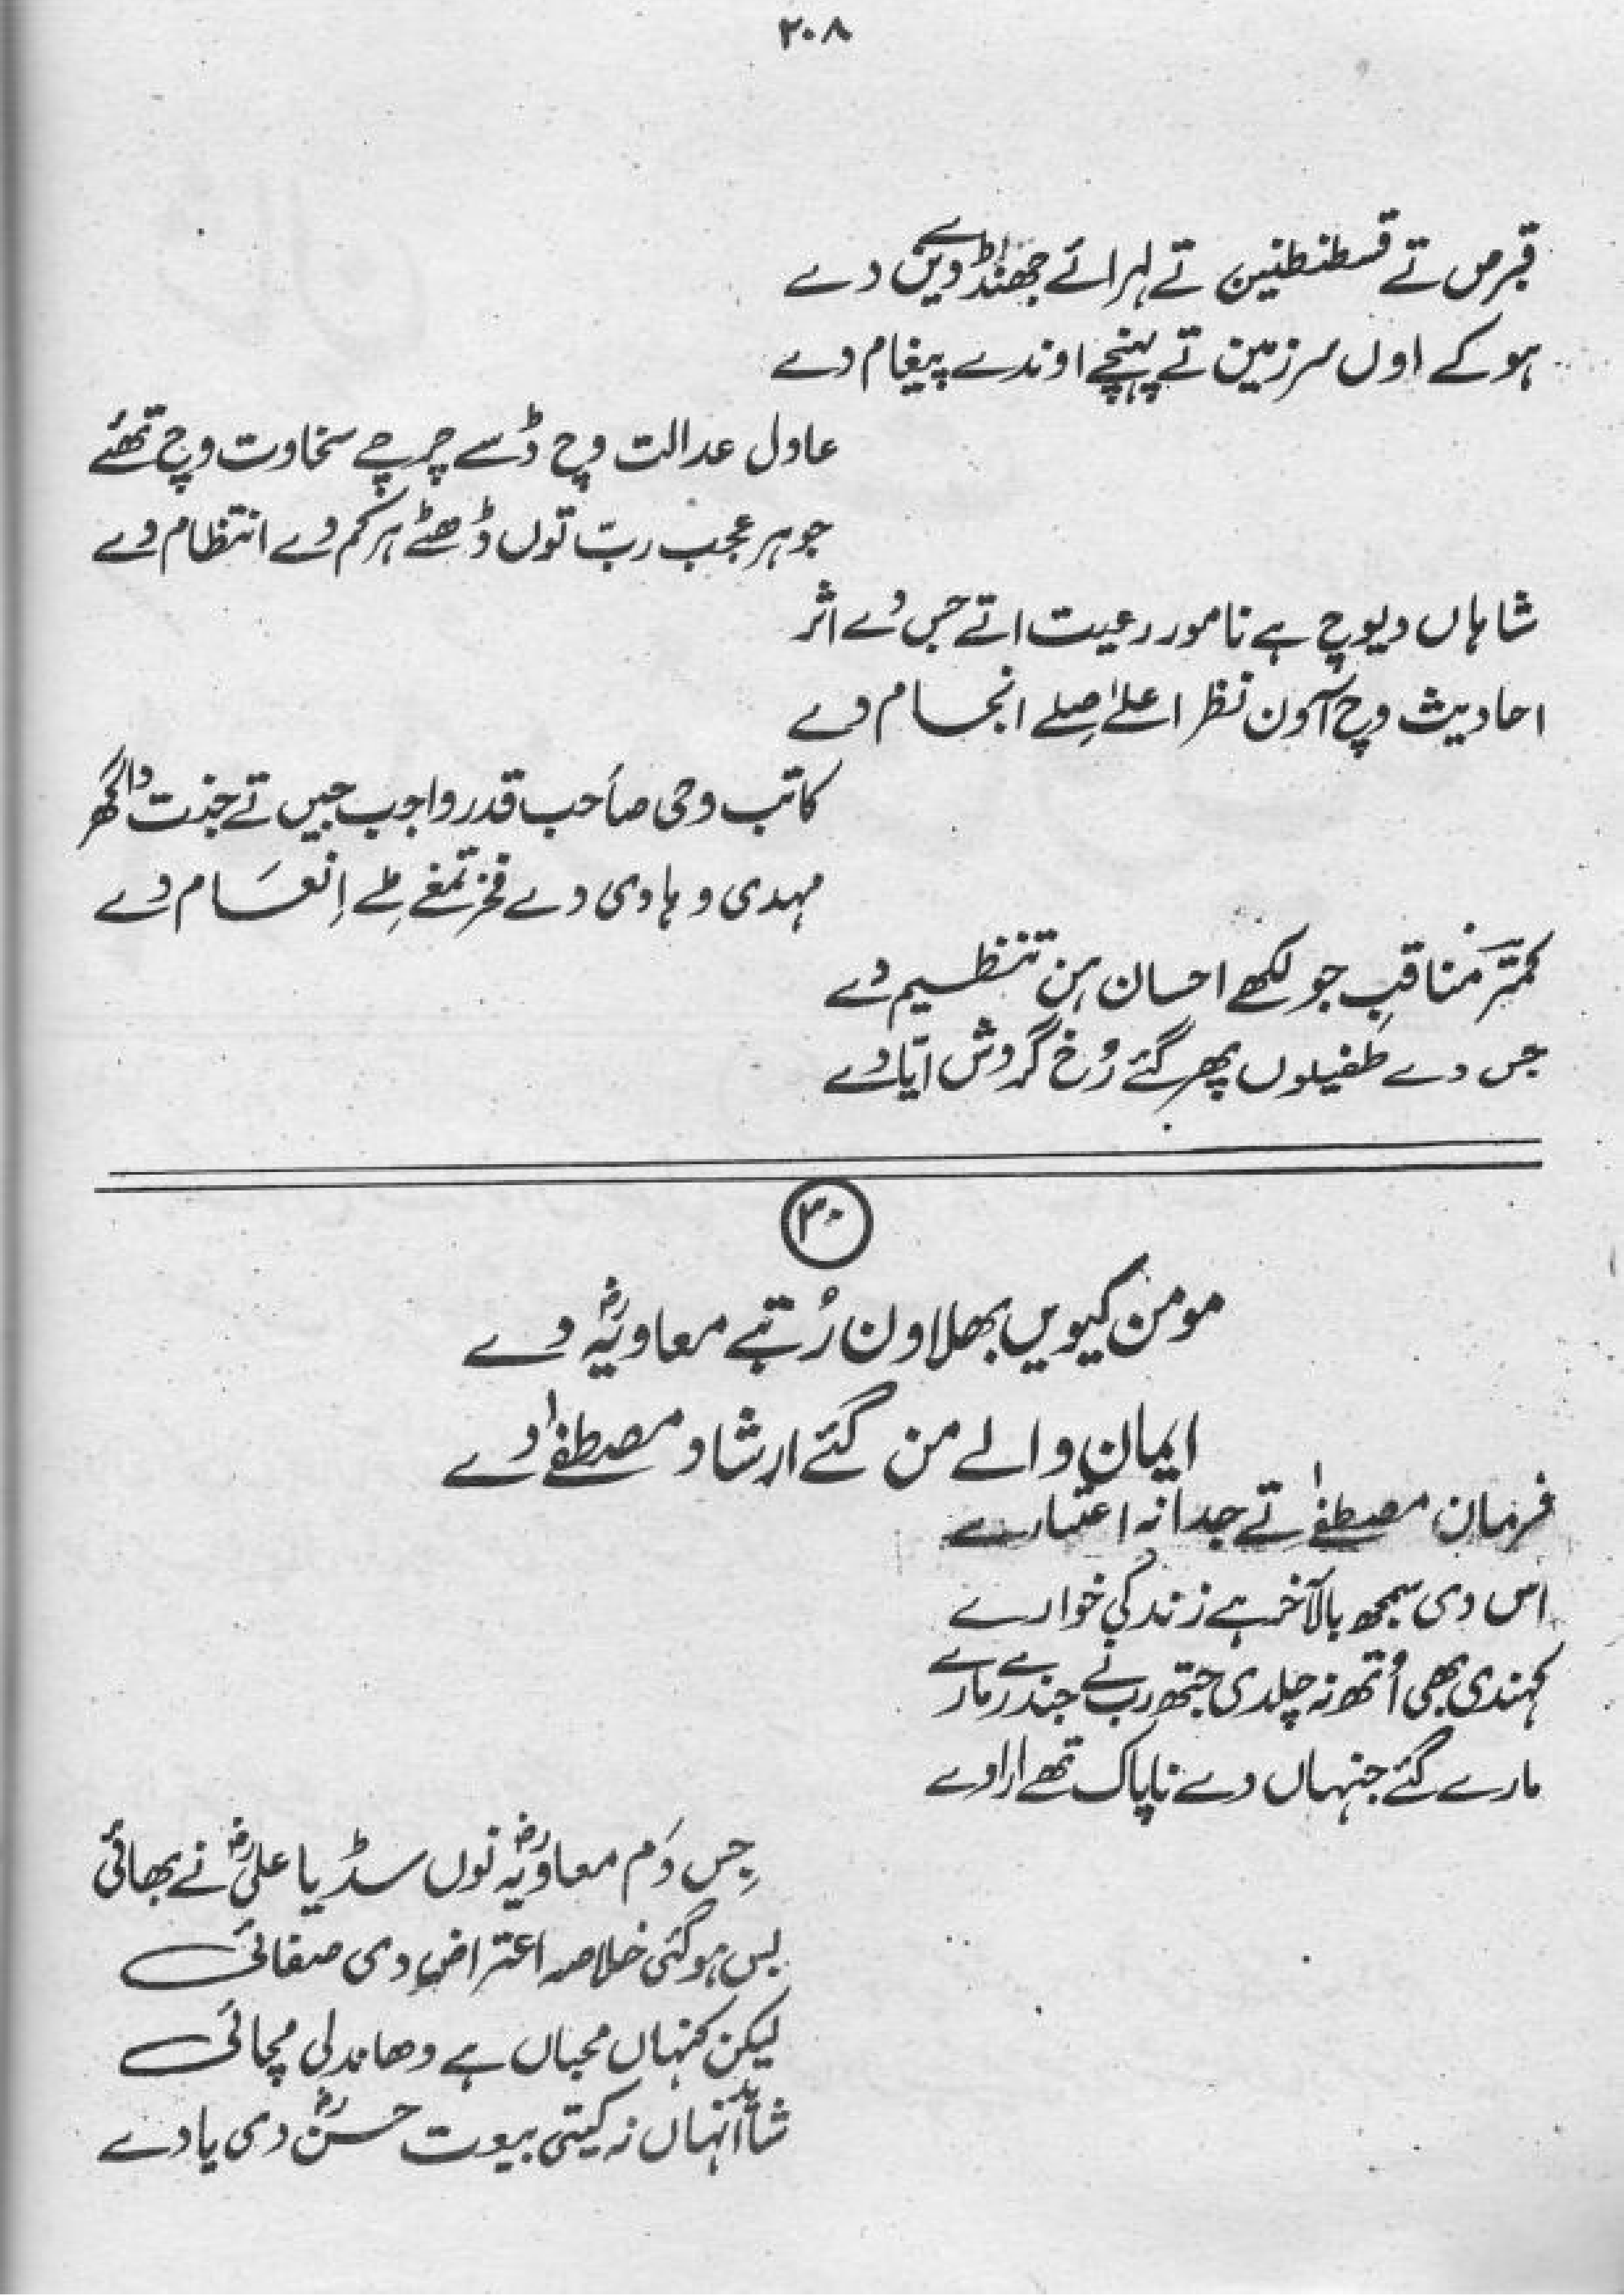 ۲۰۸
قبرص تے قسطنطنین تے لہرائے جھنڈے دین دے
ہوکے اول سرزمین تے پہنچے اوندے پیغام دے
عادل عدالت وچ ڈسے چرچے سخاوت وچ تھئے
جوہر عجب رب توں ڈھٹے ہر کم دے انتظام دے
شاہاں دیوچ ہے نامور رعیت اتے جس دے اثر
احادیث وچ آون نظر اعلےٰ صلے انجام دے
کاتب وحی صاحب قدر واجب جیں تے جنت دا گھر
مہدی و ہادی دے فخر تمغے ملے اِنعَام دے
کمتر مناقب جو لکھے احسان ہن تنظیم دے
جس دے طفیلوں پھر گئے رُخ گردش ایّام دے
۳۰
مومن کیویں بھلاون رُتبے معاویہؓ دے
ایمان والے من گئے ارشاد مصطفےٰ دے
فرمان مصطفےٰ تے جدا نہ اعتبارے
اس دی سمجھ بالآخر ہے زندگی خوارے
کہندی بھی اُتھ نہ چلدی جتھ رب نے جندرے مارے
مارے گئے جنہاں دے ناپاک تھے ارادے
جِس دَم معاویہؓ نوں سڈیا علیؓ نے بھائی
بس ہوگئی خلاصہ اعتراض دی صفائی
لیکن کنہاں محباں ہے دھاندلی مچائی
شائد انہاں نہ کیتی بیعت حسنؓ دی یادے